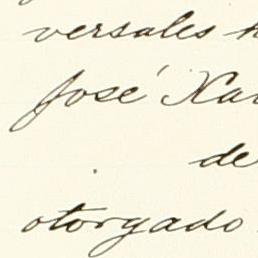 versales
José
de
otorgado